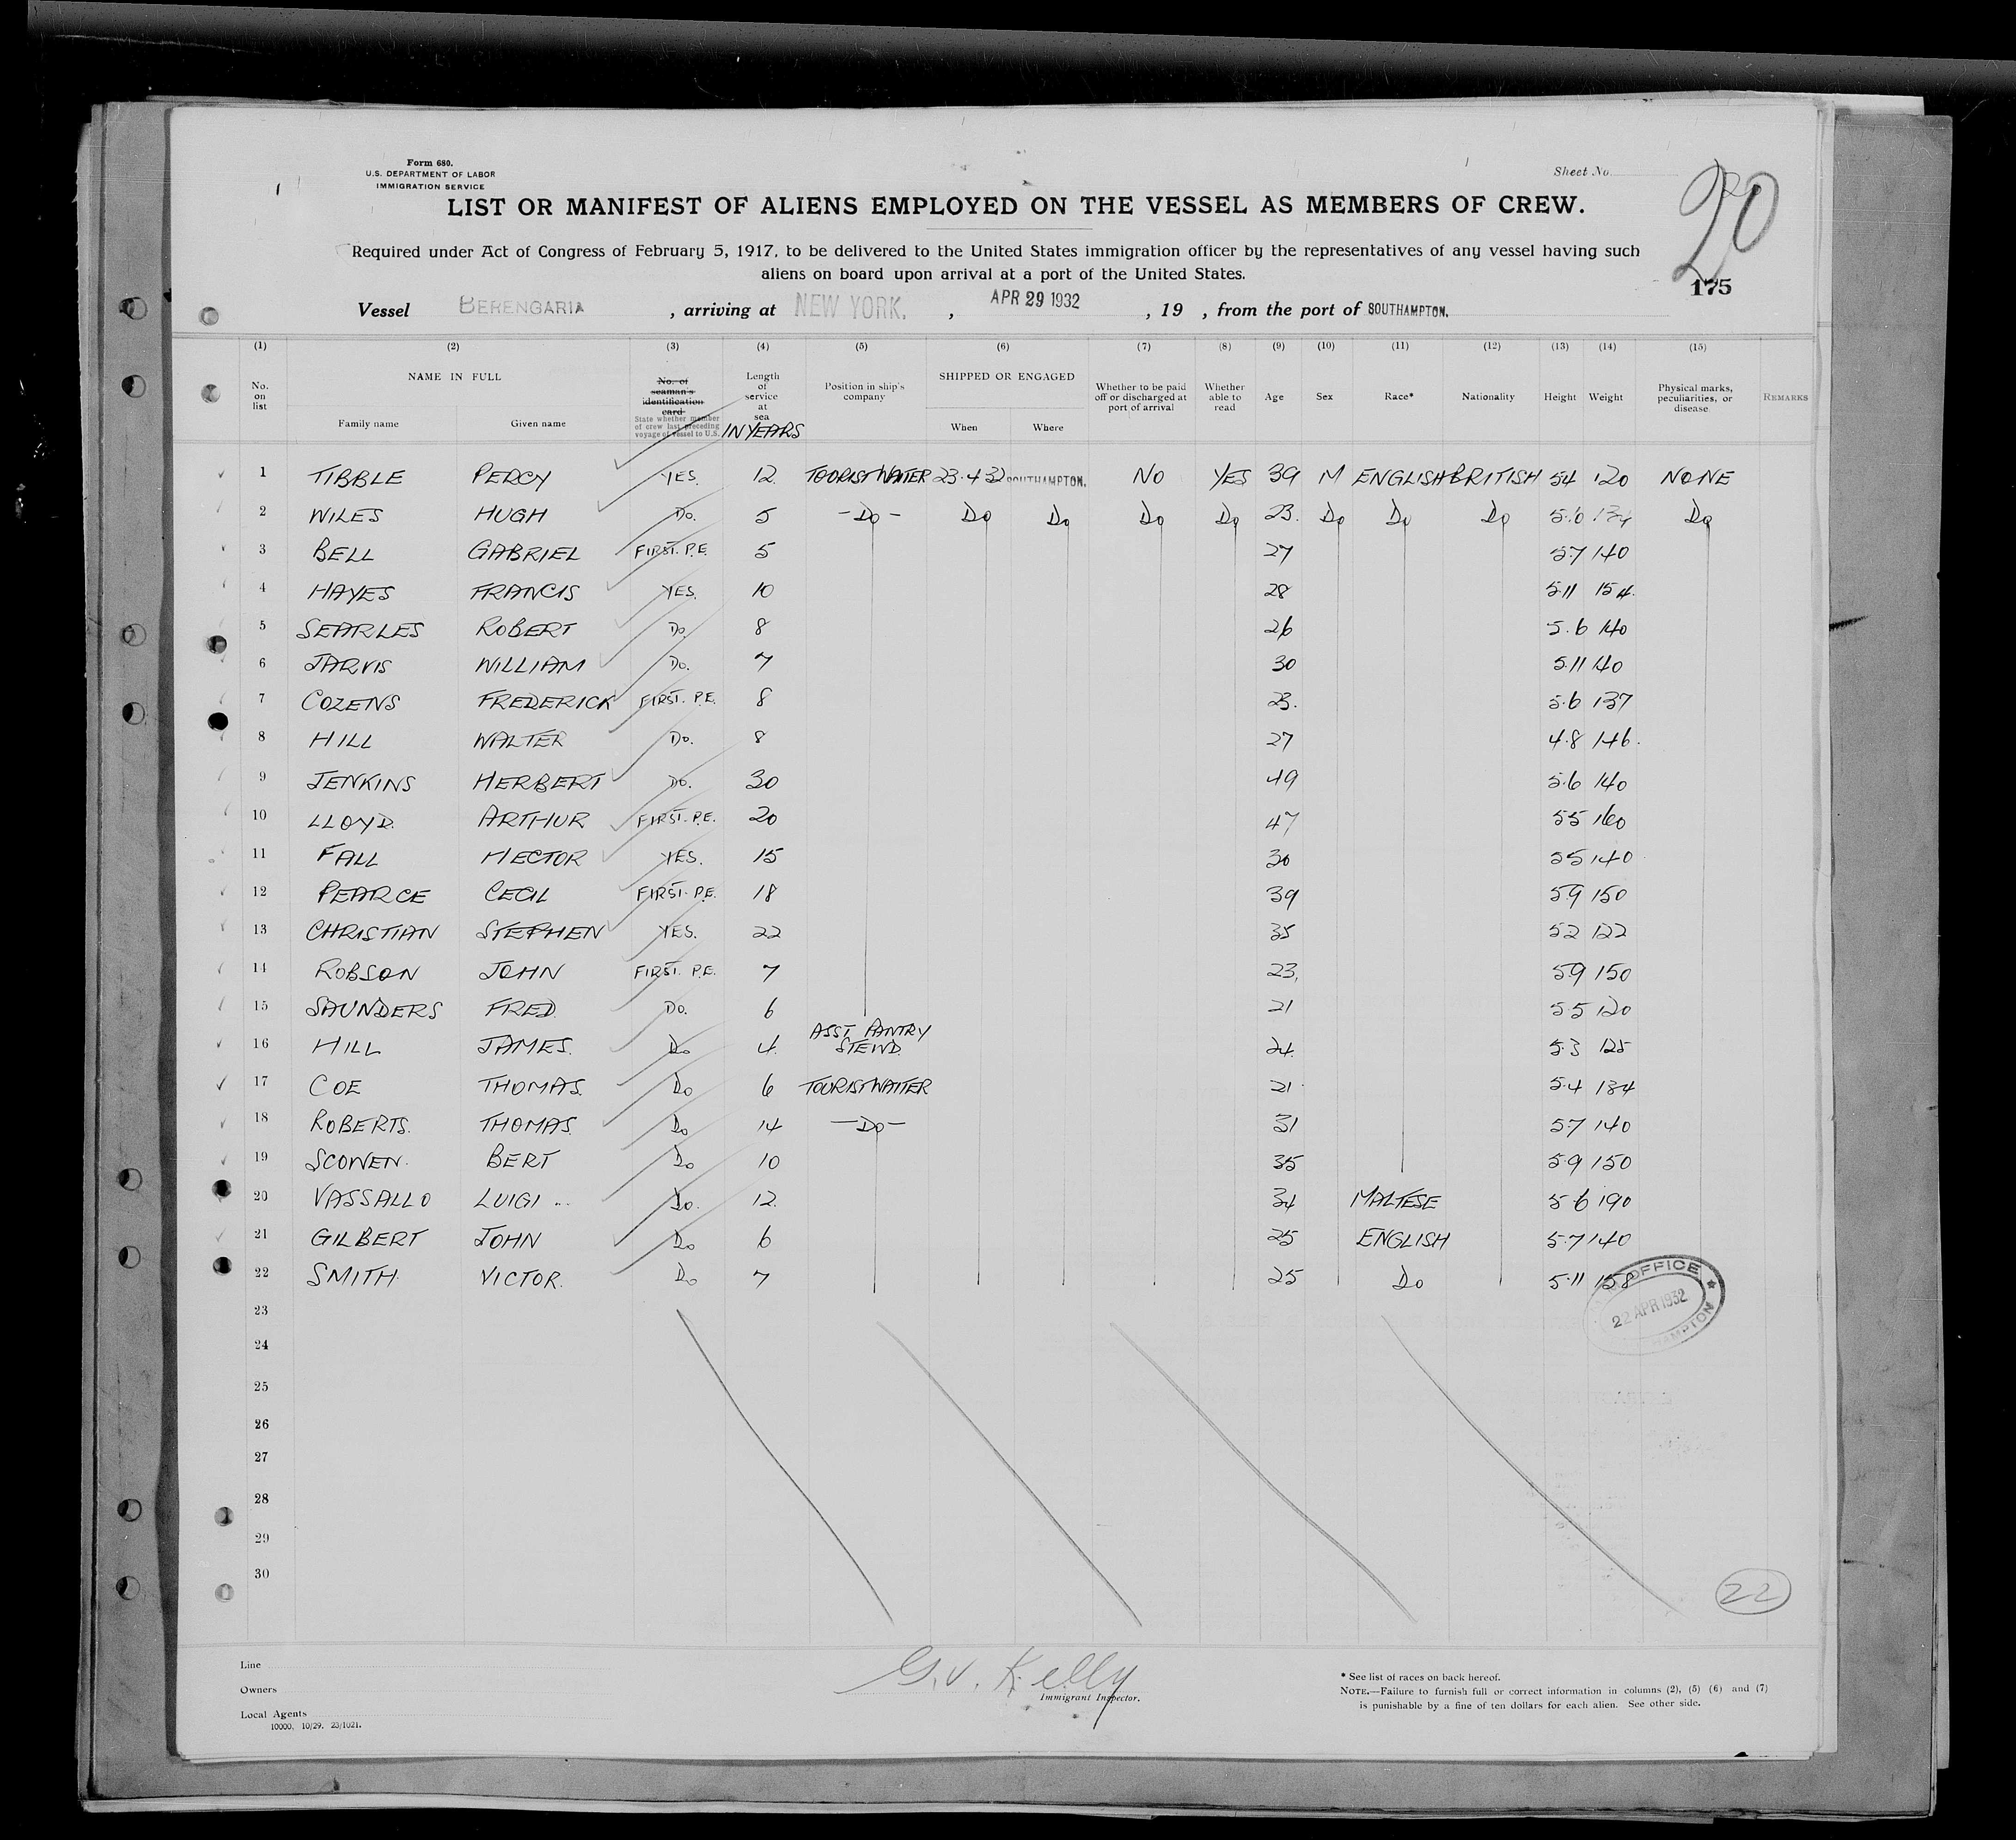 Form 680.
U.S. DEPARTMENT OF LABOR
IMMIGRATION SERVICE
Sheet No.
20
LIST OR MANIFEST OF ALIENS EMPLOYED ON THE VESSEL AS MEMBERS OF CREW.
Required under Act of Congress of February 5, 1917, to be delivered to the United States immigration officer by the representatives of any vessel having such
aliens on board upon arrival at a port of the United States.
175
Vessel BERENGARIA , arriving at NEW YORK. , APR 29 1932 , 19 , from the port of SOUTHAMPTON.
(1) (2) (3) (4) (5) (6) (7) (8) (9) (10) (11) (12) (13) (14) (15)
No. on list NAME IN FULL Family name Given name No. of seaman's identification card State whether member of crew last preceding voyage of vessel to U.S. Length of service at sea IN YEARS Position in ship's company SHIPPED OR ENGAGED When Where Whether to be paid off or discharged at port of arrival Whether able to read Age Sex Race* Nationality Height Weight Physical marks, peculiarities, or disease REMARKS
1 TIBBLE PERCY YES. 12 TOURIST WAITER 23.4.32 SOUTHAMPTON. NO YES 39 M ENGLISH BRITISH 54 120 NONE
2 WILES HUGH Do. 5 -Do- Do Do Do Do 23. Do Do Do 5.10 Do
3 BELL GABRIEL FIRST. P.E. 5 27 5.7 140
4 HAYES FRANCIS YES. 10 28 5.11 154.
5 SEARLES ROBERT Do. 8 26 5.6 140
6 JARVIS WILLIAM Do. 7 30 5.11 140
7 COZENS FREDERICK FIRST. P.E. 8 23. 5.6 137
8 HILL WALTER Do. 8 27 4.8 146.
9 JENKINS HERBERT Do. 30 49 5.6 140
10 LLOYD. ARTHUR FIRST. P.E. 20 47 55 160
11 FALL HECTOR YES. 15 30 55 140
12 PEARCE CECIL FIRST. P.E. 18 39 59 150
13 CHRISTIAN STEPHEN YES. 22 35 52 122
14 ROBSON JOHN FIRST. P.E. 7 23, 59 150
15 SAUNDERS FRED. Do. 6 21 55 120
16 HILL JAMES. Do 4. ASST. PANTRY STEWD. 24. 5.3 125
17 COE THOMAS. Do 6 TOURIST WAITER 21. 5.4 134
18 ROBERTS. THOMAS. Do 14 -Do- 31 5.7 140
19 SCOWEN. BERT Do 10 35 5.9 150
20 VASSALLO LUIGI .. Do. 12. 34 MALTESE 5.6 190
21 GILBERT JOHN Do 6 25 ENGLISH 5.7 140
22 SMITH. VICTOR. Do 7 25 Do 5.11 158
OFFICE
22 APR 1932
HAMPTON
23
24
25
26
27
28
29
30
22
Line
Owners
Local Agents
10000. 10/29. 23/1021.
G.V. Kelly
Immigrant Inspector.
* See list of races on back hereof.
NOTE.—Failure to furnish full or correct information in columns (2), (5) (6) and (7)
is punishable by a fine of ten dollars for each alien. See other side.